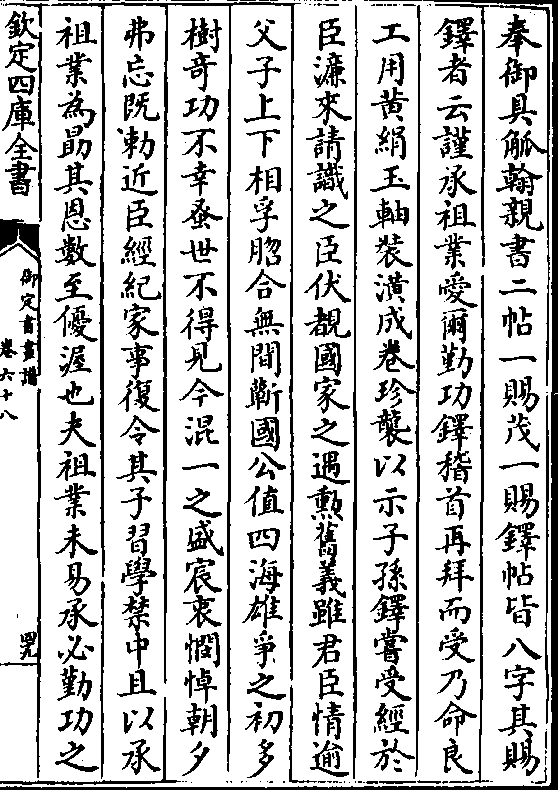 奉御具觚翰親書二帖一賜茂一賜鐸帖皆八字其賜
鐸者云謹承祖業愛爾勤功鐸稽首再拜而受乃命良
工用黄絹玉軸裝潢成卷珍襲以示子孫鐸嘗受經於
臣濂來請識之臣伏覩國家之遇勲舊義雖君臣情逾
父子上下相孚脗合無間蘄國公值四海雄爭之初多
樹奇功不幸蚤世不得見今混一之盛宸衷憫悼朝夕
弗忘既勅近臣經紀家事復令其子習學禁中且以承
祖業為勗其恩數至優渥也夫祖業未易承必勤功之
欽定四庫全書
御定書畫譜
卷六十八